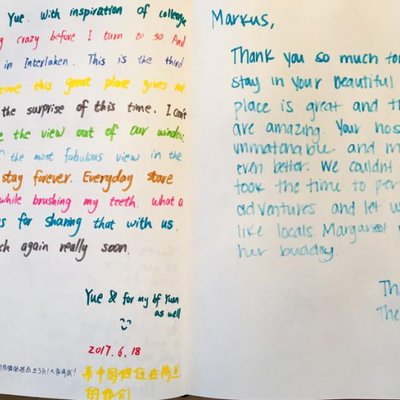 Yue. With inspiration of college
crazy before I turn to 30 And
in Interlaken. This is the third
time this great place gives me
the surprise of this time. I can't
the view out of our window
the most fabulous view in the
stay forever. Everyday stare
while brushing my teeth. what a
for sharing that with us.
again really soon.
Yue & for my bf Yuan
as well
2017.6.18
Markus,
Thank you so much for
stay in your beautiful
place is great and th
are amazing. Your hos
unmatchable and m
even better. We couldnt
took the time to per
adventures and let us
like locals. Margaret
her buddy.
Th
The